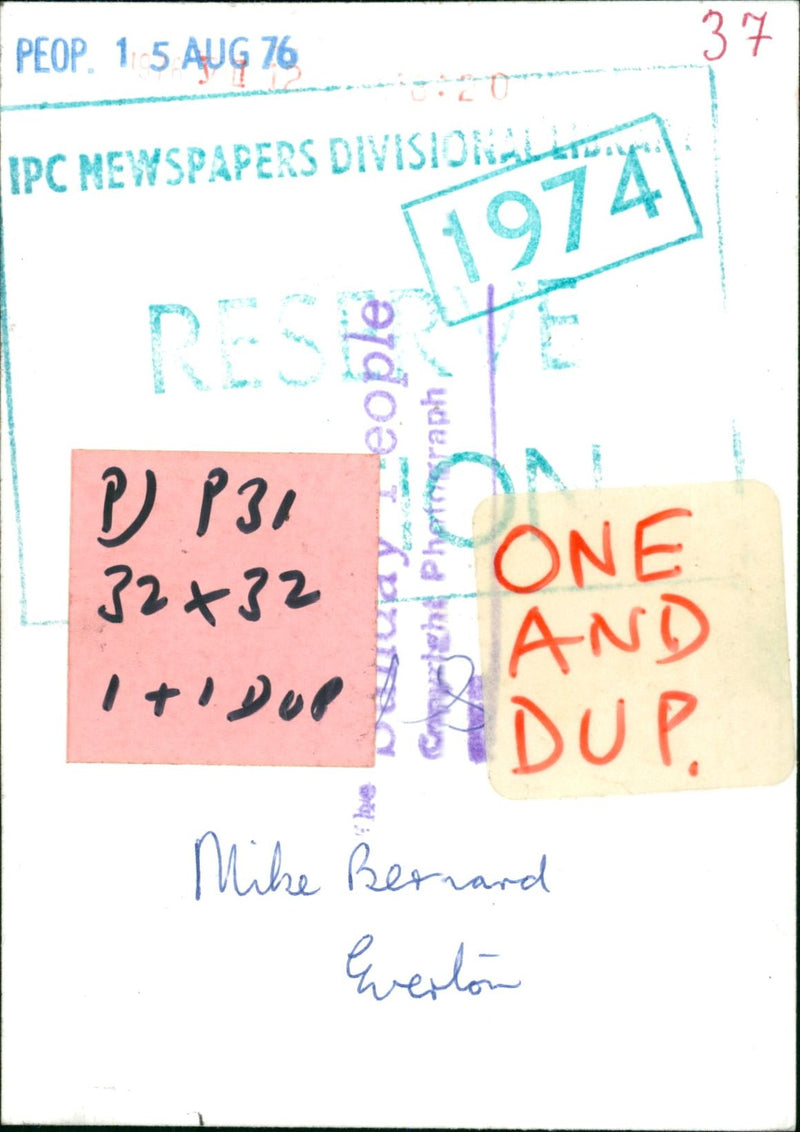 37
PEOP. 1 5 AUG 76
IPC NEWSPAPERS DIVISIONAL LIBRARY
1974
RESERVE
ION
The Sunday People
Copyright Photograph
P) P31
32 x 32
1 + 1 DUP
ONE
AND
DUP.
Mike Bernard
Everton